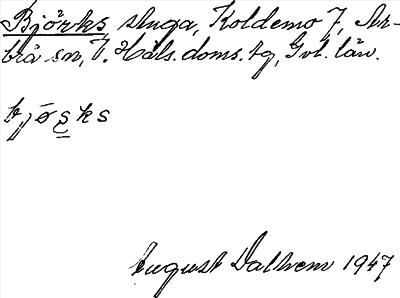 Björks stuga, Koldemo 7, Ar-
brå sn, V. Häls. doms. tg, Gvl. län.
bjøs̱ks
August Dalhem 1947